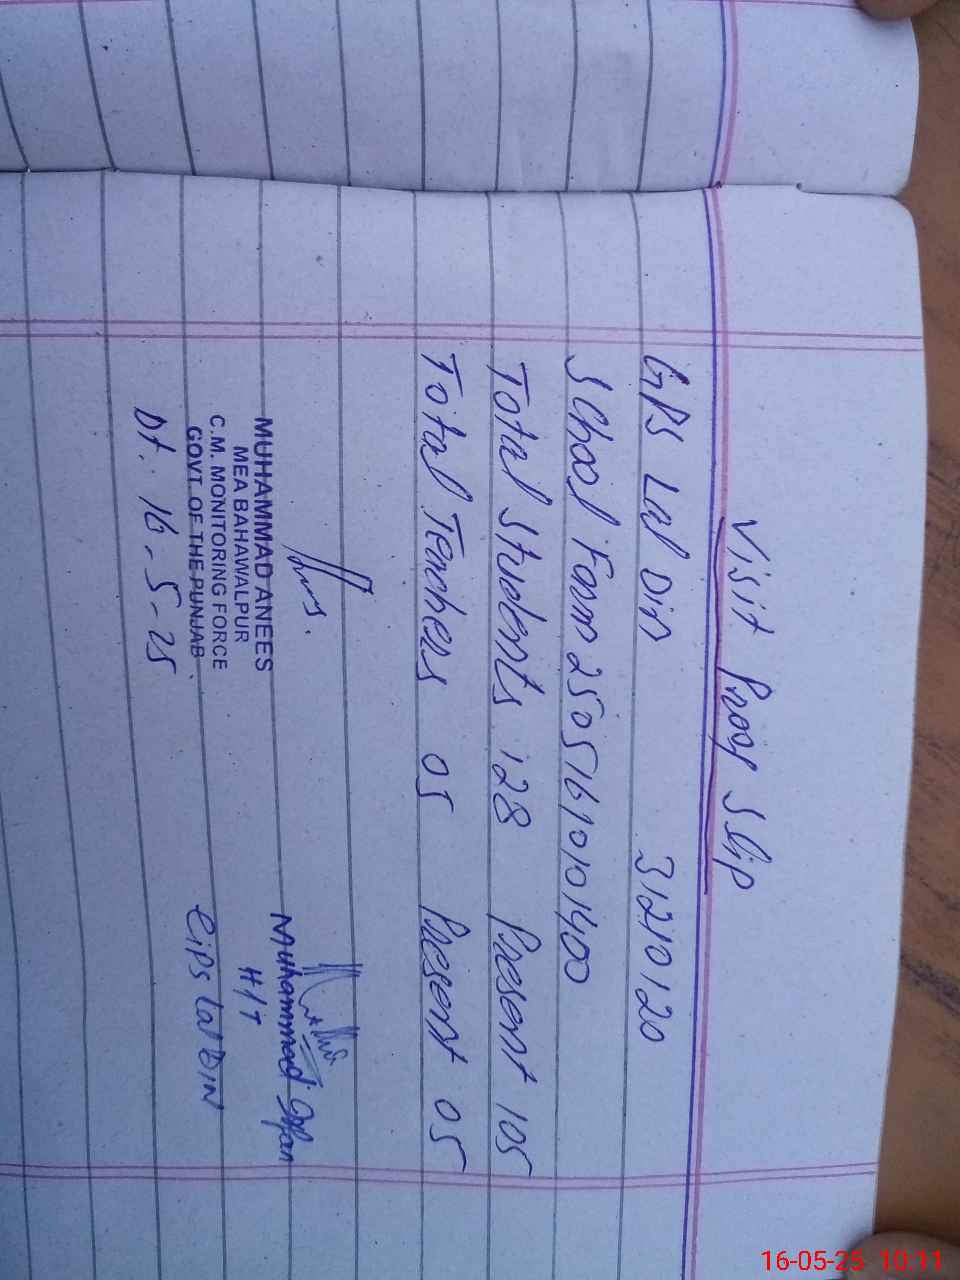 Visit Proof Slip
GPS Lal Din 31210120
School Form 25051610101400
Total Students 128 Present 105
Total Teachers 05 Present 05
MUHAMMAD ANEES
MEA BAHAWALPUR
C.M. MONITORING FORCE
GOVT. OF THE PUNJAB
Dt. 16-5-25
Muhammad Irfan
H/T
GPS Lal DIN
16-05-25 10:11